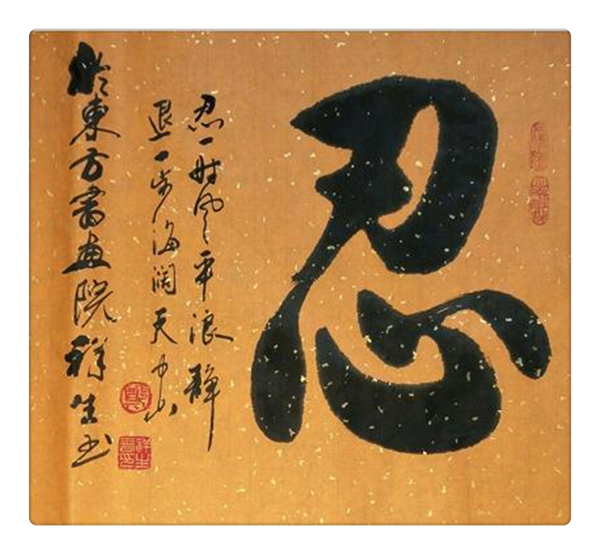 忍
忍一时风平浪静
退一步海阔天空
於東方書画院祥生书